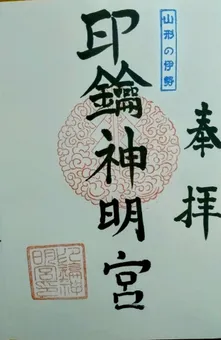 奉拝
山形の伊勢
印鑰神明宮
印鑰神
明宮寺